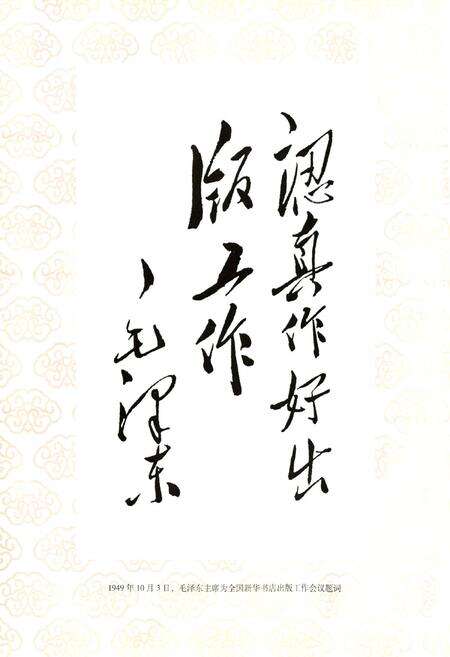 認真作好出
版工作
毛澤东
1949年10月3日，毛泽东主席为全国新华书店出版工作会议题词